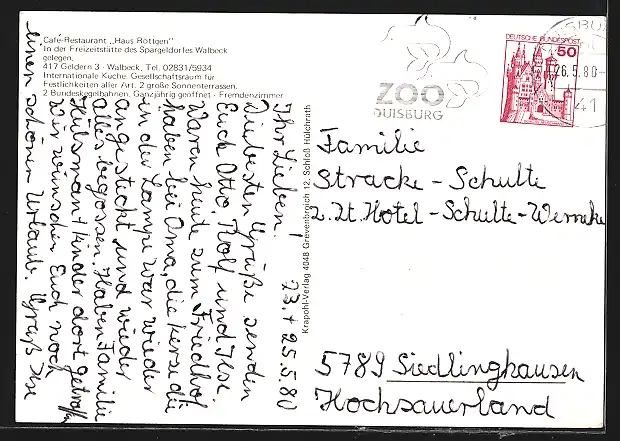 Café-Restaurant „Haus Röttgen"
In der Freizeitstätte des Spargeldorfes Walbeck
gelegen.
417 Geldern 3 - Walbeck, Tel. 02831/5934
Internationale Küche. Gesellschaftsraum für
Festlichkeiten aller Art. 2 große Sonnenterrassen.
2 Bundeskegelbahnen. Ganzjährig geöffnet - Fremdenzimmer
Ihr Lieben! 23.+25.5.80
Die besten Grüße senden
Euch Otto Rolf und Ilse.
Waren heute zum Friedhof
haben bei Oma, die Kerze die
in der Lampe war wieder
angesteckt und wieder
alles begossen. Haben Familie
Hülsmann + Kinder dort getroffen
Wir wünschen Euch noch
einen schönen Urlaub. Gruß Ilse
Krapohl-Verlag 4048 Grevenbroich 12, Schloß Hülchrath
ZOO
DUISBURG
DEUTSCHE BUNDESPOST
50
26.5.80
41
Familie
Stracke - Schulte
z. Zt. Hotel - Schulte - Werneke
5789 Siedlinghausen
Hochsauerland